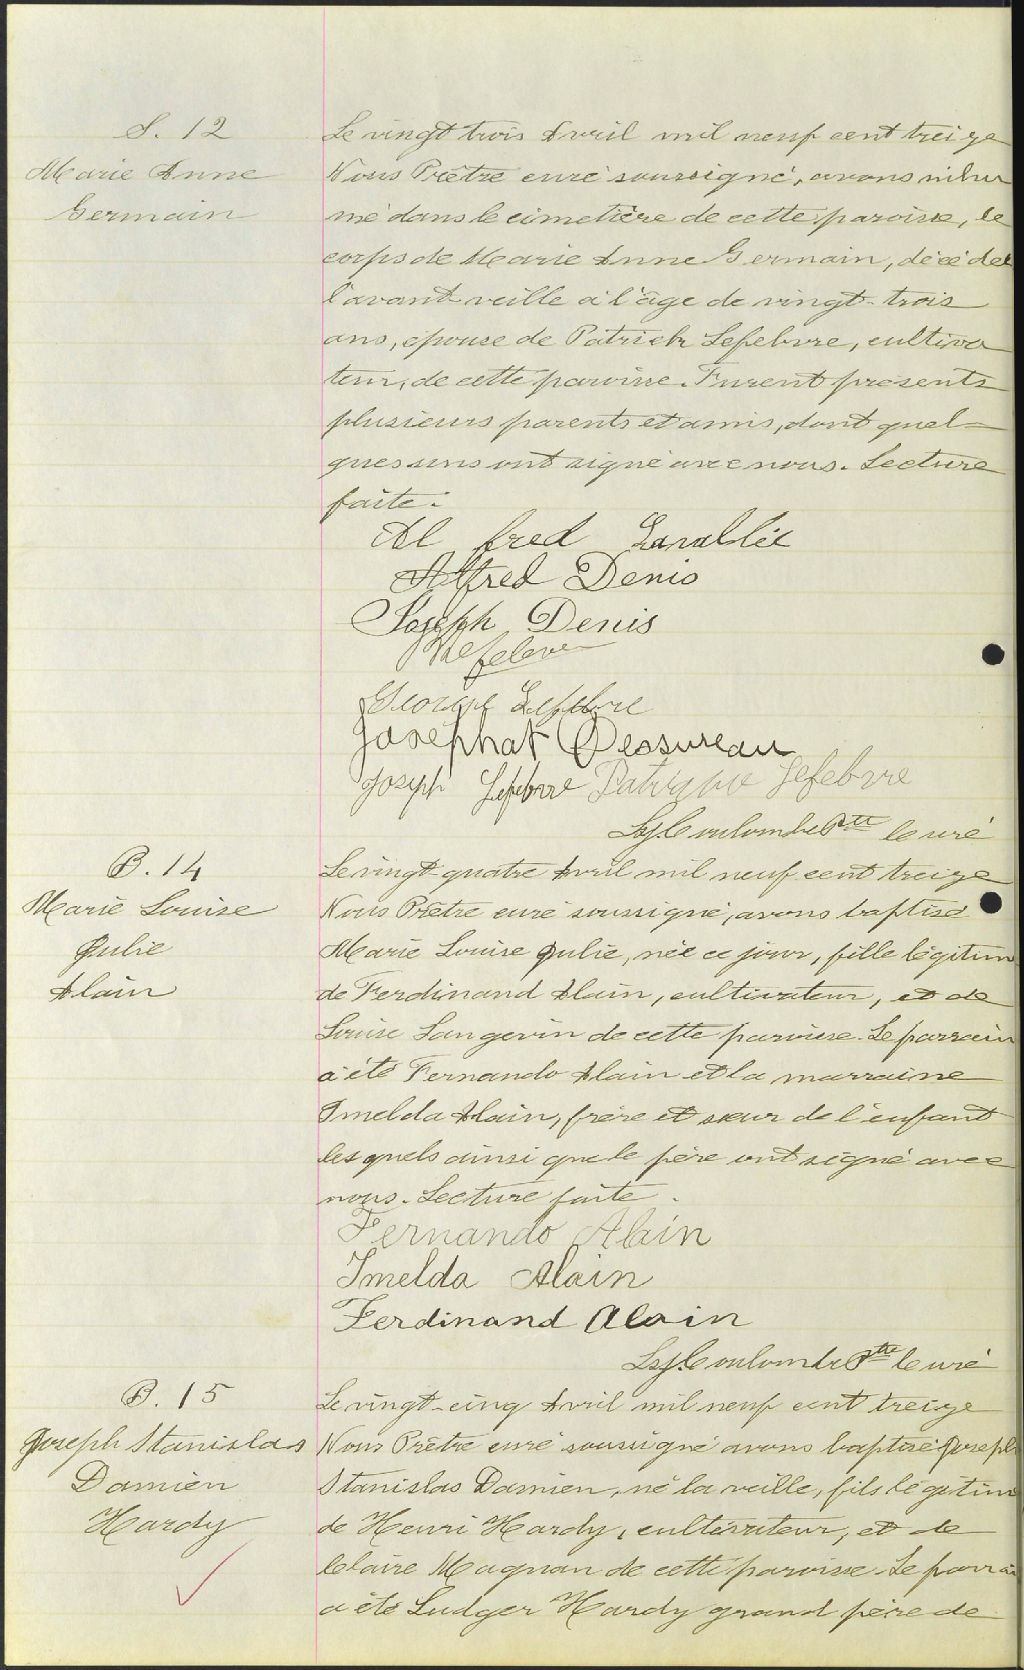 S. 12
Marie Anne
Germain
Le vingt trois Avril mil neuf cent treize
Nous Prêtre curé soussigné, avons inhu
mé dans le cimetière de cette paroisse, le
corps de Marie Anne Germain, décédée
l'avant veille à l'âge de vingt-trois
ans, épouse de Patrick Lefebvre, cultiva
teur, de cette paroisse. Furent présents
plusieurs parents et amis, dont quel=
ques uns ont signé avec nous. Lecture
faite.
Al fred Lavallée
Alfred Denis
Joseph Denis
George Lefebvre
Josephat Dessureau
Joseph Lefebvre Lefebvre
Coulombe Ptre Curé
B. 14
Marie Louise
Julie
Alain
Le vingt-quatre Avril mil neuf cent treize
Nous Prêtre curé soussigné, avons baptisé
Marie Louise Julie, née ce jour, fille légitime
de Ferdinand Alain, cultivateur, et de
Louise Langevin de cette paroisse. Le parrain
a été Fernando Alain et la marraine
Imelda Alain, frère et sœur de l'enfant
lesquels ainsi que le père ont signé avec
nous. Lecture faite.
Fernando Alain
Imelda Alain
Ferdinand Alain
Coulombe Ptre Curé
B. 15
Joseph Stanislas
Damien
Hardy
Le vingt-cinq Avril mil neuf cent treize
Nous Prêtre curé soussigné avons baptisé Joseph
Stanislas Damien, né la veille, fils légitime
de Henri Hardy, cultivateur, et de
Claire Magnan de cette paroisse. Le parrain
a été Ludger Hardy grand père de